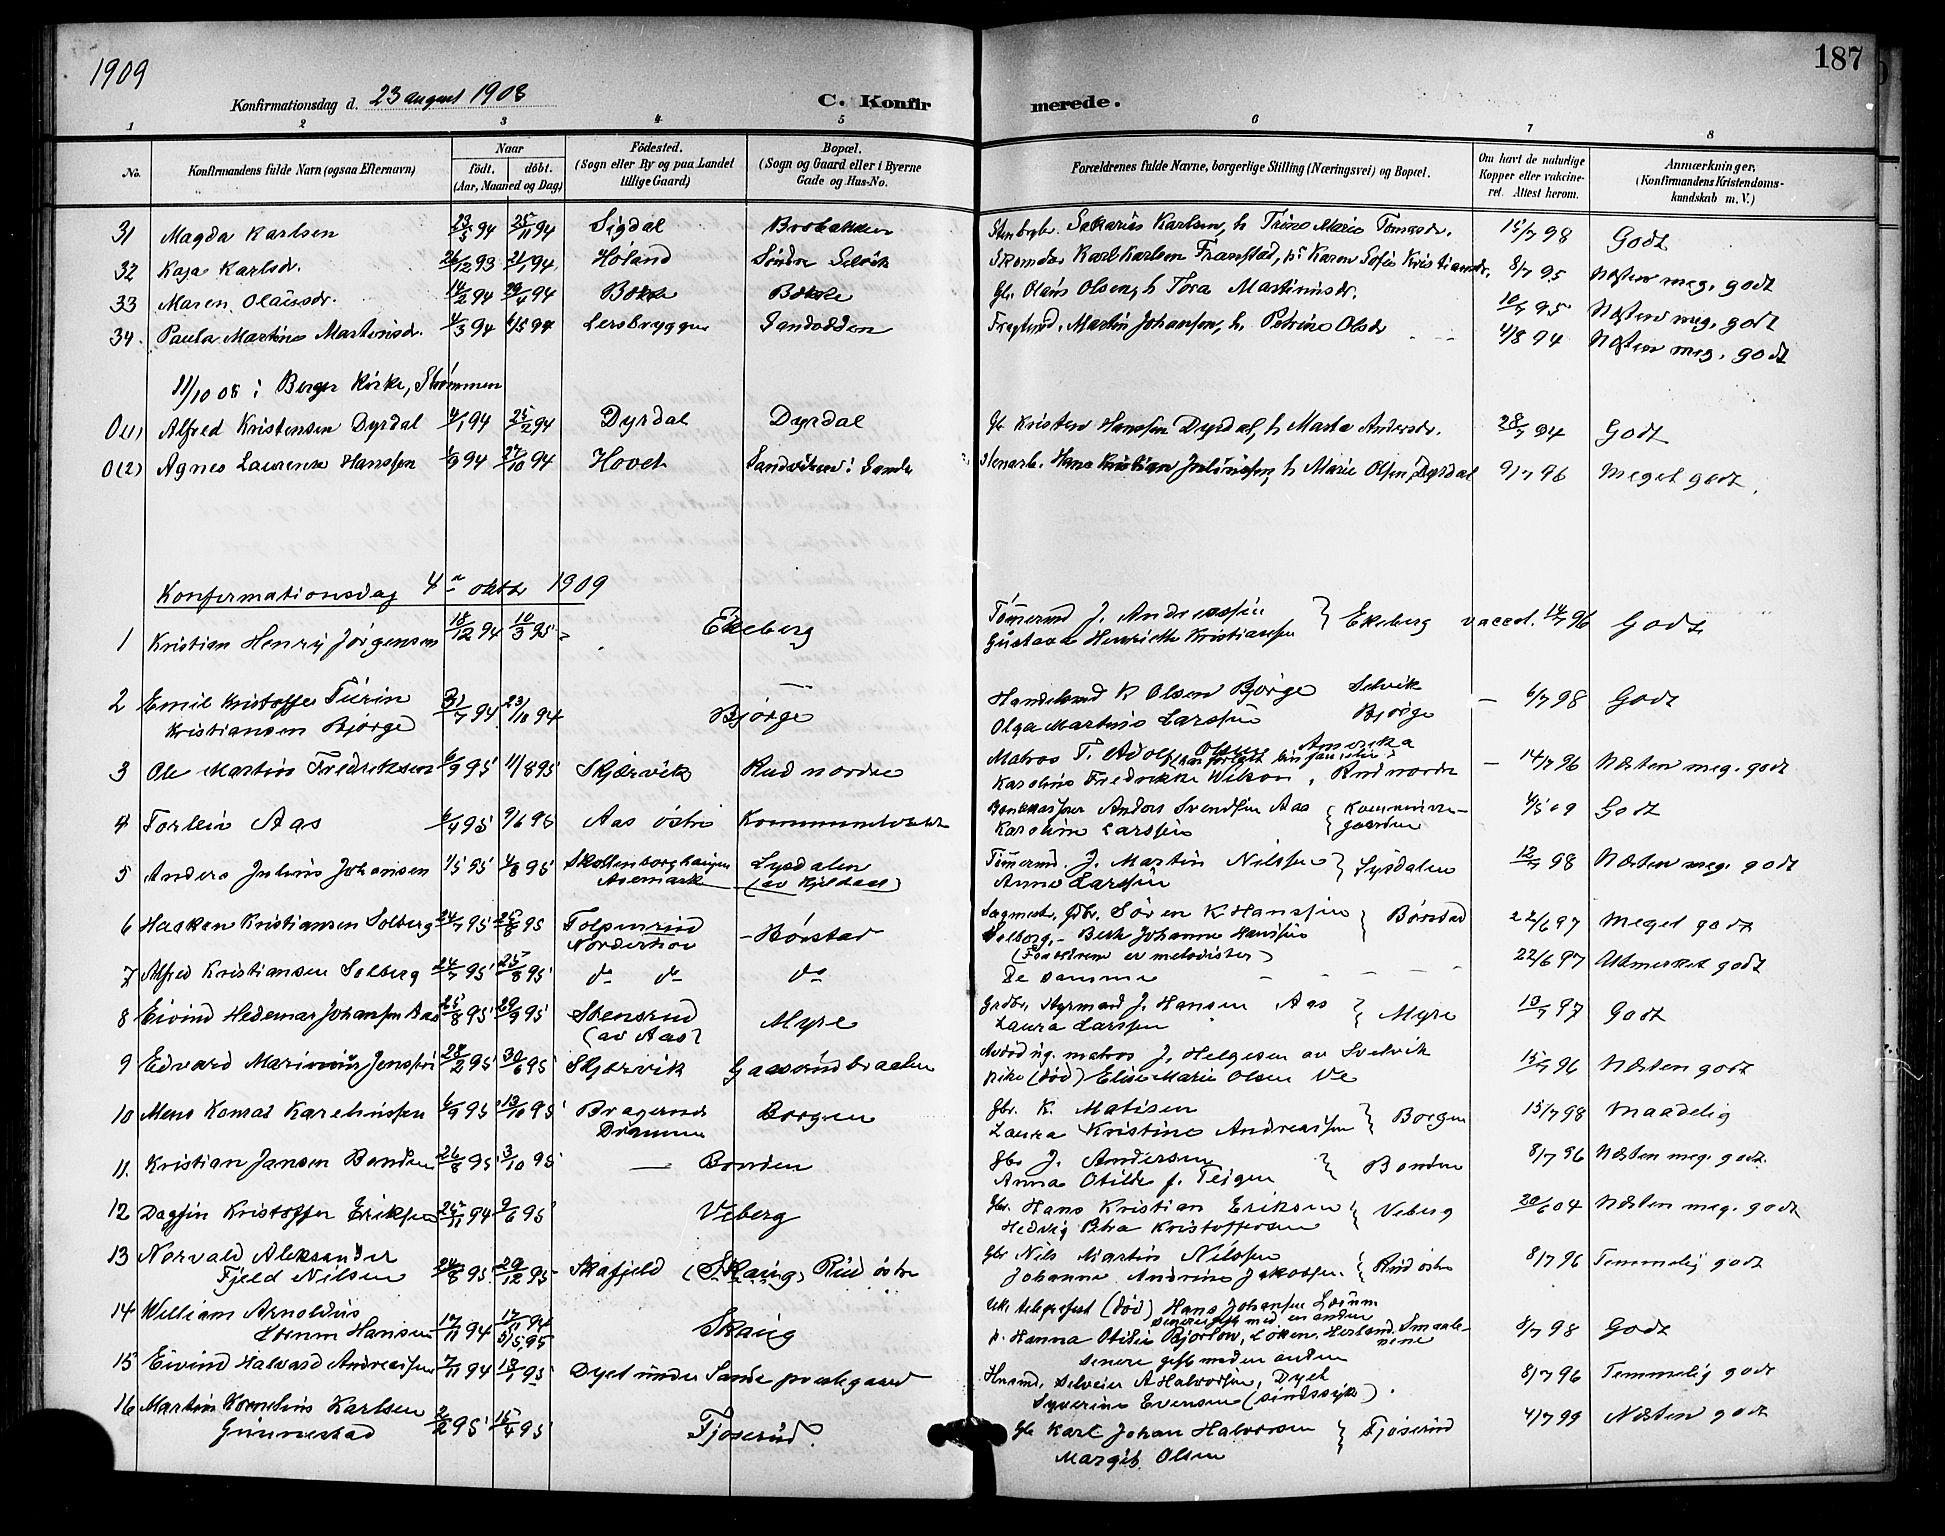 1909
187
Konfirmationsdag d. 23 august 1908
C. Konfirmerede.
1 2 3 4 5 6 7 8
No. Konfirmandens fulde Navn (ogsaa Efternavn) Naar født. døbt. (Aar, Maaned og Dag) Fødested. (Sogn eller By og paa Landet tillige Gaard) Bopæl. (Sogn og Gaard eller i Byerne Gade og Hus-No. Forældrenes fulde Navne, borgerlige Stilling (Næringsvei) og Bopæl. Om havt de naturlige Kopper eller vakcineret. Attest herom. Anmærkninger, (Konfirmandens Kristendomskundskab m. V.)
31 Magda Karlsen 23/5 94 25/11 94 Sigdal Brobakken Sakarias Karlsen, h Trine Marie Tomasdr. 15/7 98 Godt
32 Kaja Karlsdr. 26/12 93 21/1 94 Høland Søndre Selvik Skomder Karl Karlsen Franstad, h. Karen Sofie Kristiansdr. 8/7 95 Næsten meg. godt
33 Maren Olausdr. 14/2 94 29/4 94 Bekke Bekke Gbr. Olaus Olsen, h Tora Martinusdr. 10/7 95 Næsten meg. godt
34. Paula Martine Martinsdr. 4/3 94 6/5 94 Lersbryggen Sandodden Martin Johansen, h. Petrine Olsdr 4/8 94 Næsten meg. godt
11/10 08 i Berger Kirke, Strømmen
0(1) Alfred Kristensen Dyrdal 4/1 94 25/2 94 Dyrdal Dyrdal Gb Kristen Hanssen Dyrdal, h Marta Andersdr. 28/7 94 Godt
0(2) Agnes Laurense Hanssen 6/9 94 27/10 94 Hovet Sandviken i Sande Stenarb. Hans Kristian Juliussen, h Marie Olsen, Dyrdal 9/7 96 Meget godt.
Konfirmationsdag 4de oktbr 1909
1 Kristian Henry Jørgensen 18/12 94 10/3 95 Ekeberg Tømmermd J. Andreassen
Gustava Henriette Kristiansen } Ekeberg vacced. 14/7 96 Godt
2 Emil Kristoffer Turin
Kristiansen Bjørge 31/7 94 23/10 94 Bjørge Handelsmd K Olsen Bjørge Selvik
Olga Martine Larssen Bjørge — 6/7 98 Godt
3 Ole Martin Fredriksen 6/9 95 11/8 95 Skjærvik Rud nordre Matros T. Adolf Olsen Amerika
(har forlatt sin familie)
Karoline Fredrikke Wilson, Rud nordre — 14/7 96 Næsten meg. godt
4 Torlein Aas 6/4 95 9/6 95 Aas østre Kommunelokalet Bankkasserer Anders Svendsen Aas
Karoline Larssen { Kommunegaarden 4/5 09 Godt
5 Anders Julius Johansen 1/5 95 4/8 95 Skottenborghaugen
Asemark Lysdalen
(av Kjeldaas) Tømmermd. J. Martin Nilssen
Anne Larssen } Lysdalen 12/7 98 Næsten meg. godt
6 Haaken Kristiansen Solberg 24/7 95 25/8 95 Tolpinrud
Norderhov Børstad Sagmest. Gbr. Søren K Hanssen
Solberg, - Berte Johanne Hanssen
(Forældrene er metodister) } Børstad 22/6 97 Meget godt
7 Alfred Kristiansen Solberg 24/7 95 25/8 95 do do do De samme 22/6 97 Utmerket godt
8 Eivind Hedemar Johansen Aas 25/8 95 29/9 95 Stensrud
(av Aas) Myre Grdbr. Styrmand J. Hansen Aas
Laura Larssen } Myre 10/7 97 Godt
9 Edvard Marinius Jenssen 28/2 95 30/6 95 Skjærvik Gaasrudbraaten matros J. Helgesen av Svelvik
(død) Elise Marie Olsen Ve 15/7 96 Næsten godt
10 Mens Konrad Kareliussen 6/9 95 13/10 95 Bragernes
Drammen Borgen Gbr. K. Matisen
Laura Kristine Andreassen } Borgen 15/7 98 Maadelig
11. Kristian Jansen Bonden 26/8 95 3/10 95 — Bonden Gbr J. Andersen
Anna Otilde f. Teigen } Bonden 8/7 96 Næsten meg. godt
12 Dagfin Kristoffer Eriksen 25/11 94 2/6 95 Veberg Gbr. Hans Kristian Eriksen
Hedvig Petra Kristoffersen } Veberg 20/6 04 Næsten meg. godt
13 Norvald Aleksander
Fjeld Nilsen 24/8 95 29/12 95 Skafjeld (Skaug) Rud østre Gbr Nils Martin Nilssen
Johanne Andrine Jakobsen. } Rud østre 8/7 96 Temmelig godt
14 William Arnoldus
Lørum Hansen 17/11 94 17/11 94
5/5 95 Skaug telegrafist (død) Hans Johansen Lørum
senere gift med en anden
h. Hanna Otilie Bjerløw, Løken, Høland, Smaalenene
senere gift med en anden 8/7 98 Godt
15 Eivind Halvard Andreassen 7/11 94 13/1 95 Dyet under Sande prestegaard Husmd. Selveier A Halvorsen, Dyet
Syverine Evensen (sindssyk). 8/7 96 Temmelig godt
16 Martin Kornelius Karlsen
Gunnestad 2/2 95 15/4 95 Tjøserud. Gb Karl Johan Halvorsen
Margit Olsen } Tjøserud 4/7 99 Næsten godt